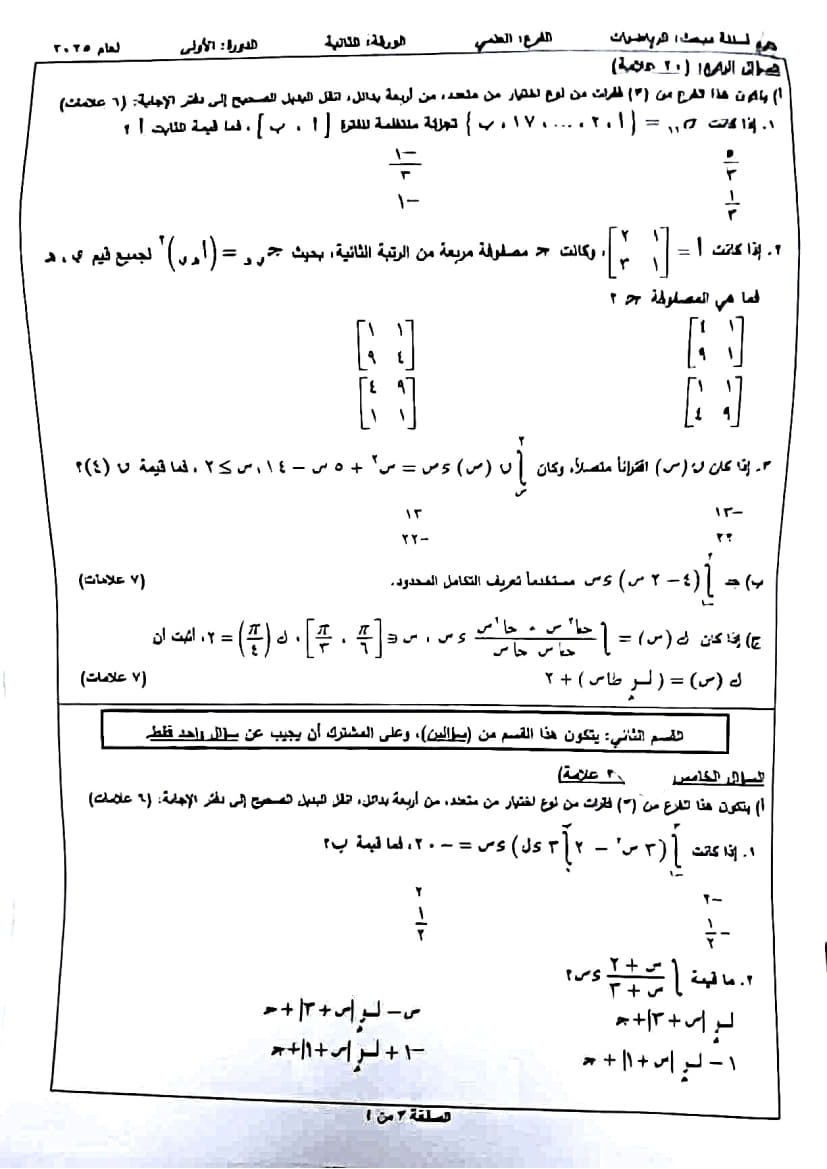 أسئلة مبحث: الرياضيات الفرع: العلمي الورقة: الثانية الدورة: الأولى لعام ٢٠٢٥
(٢٠ علامة)
أ) يتكون هذا الفرع من (٣) فقرات من نوع اختيار من متعدد، من أربعة بدائل، انقل البديل الصحيح إلى دفتر الإجابة: (٦ علامات)
١. إذا كانت = {أ، ٢، ...، ١٧، ب} تجزئة منتظمة للفترة [أ، ب]، فما قيمة الثابت أ ؟
٥/٣ -١/٣
١/٣ -١
٢. إذا كانت أ = [١ ٢ ; ١ ٣]، وكانت جـ مصفوفة مربعة من الرتبة الثانية، بحيث جـ ي هـ = (أ هـ ي)٢ لجميع قيم ي، هـ
فما هي المصفوفة جـ ؟
[١ ٤ ; ١ ٩] [١ ١ ; ٤ ٩]
[١ ١ ; ٩ ٤] [٩ ٤ ; ١ ١]
٣. إذا كان ن(س) اقتراناً متصلاً، وكان ∫ ن(س) ءس = س٢ + ٥ س - ١٤، س ≥ ٢، فما قيمة ن(٤)؟
-١٣ ١٣
٢٢ -٢٢
ب) جد ∫(٤ - ٢ س) ءس مستخدماً تعريف التكامل المحدود. (٧ علامات)
ج) إذا كان ل(س) = ∫ (جتا٢س + جا٢س)/(جتاس جاس) ءس، س ∈ [π/٦، π/٣]، ل(π/٤) = ٢، أثبت أن
ل(س) = (لــو ظاس) + ٢ (٧ علامات)
القسم الثاني: يتكون هذا القسم من (سؤالين)، وعلى المشترك أن يجيب عن سؤال واحد فقط
السؤال الخامس علامة)
أ) يتكون هذا الفرع من (٣) فقرات من نوع اختيار من متعدد، من أربعة بدائل، انقل البديل الصحيح إلى دفتر الإجابة: (٦ علامات)
١. إذا كانت ∫(٣ س٢ - ٢ ∫ ٣ ءل) ءس = -٢٠، فما قيمة ب؟
-٢ ٢
-١/٢ ١/٢
٢. ما قيمة ∫ (س + ٢)/(س + ٣) ءس؟
لــو |س + ٣| + جـ س - لــو |س + ٣| + جـ
١ - لــو |س + ١| + جـ -١ + لــو |س + ١| + جـ